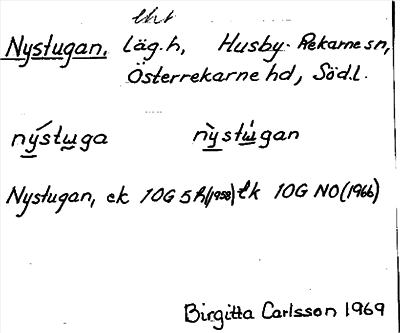 Nystugan, läg.h, Husby-Rekarne sn,
Österrekarne hd, Söd.l.
nýstuga nỳstùgan
Nystugan, ek 10G 5h (1958) tk 10G NO (1966)
Birgitta Carlsson 1969